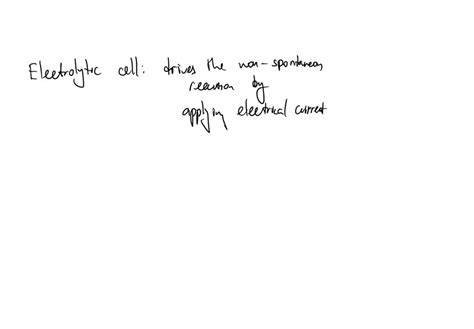 Electrolytic cell: drives the non-spontaneous
reaction by
applying electrical current